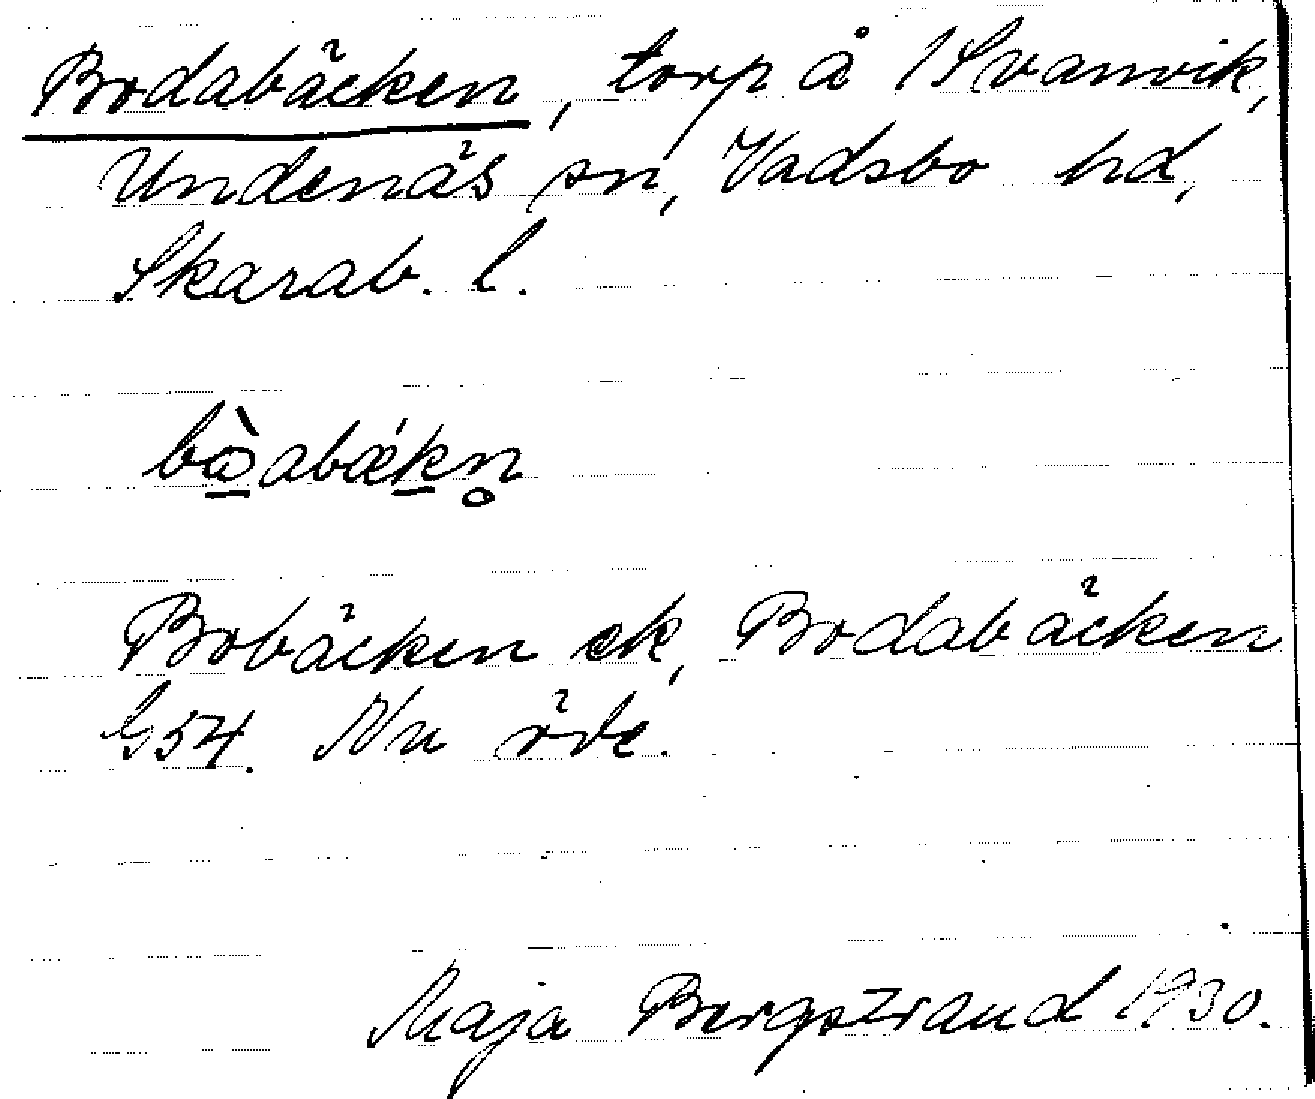 Bodabäcken, torp å 1 Svanvik,
Undenäs sn, Vadsbo hd,
Skarab. l.
bὼabǽkn̥
Bobäcken ek, Bodabäcken
G54. Nu öde.
Maja Bergstrand 1930.